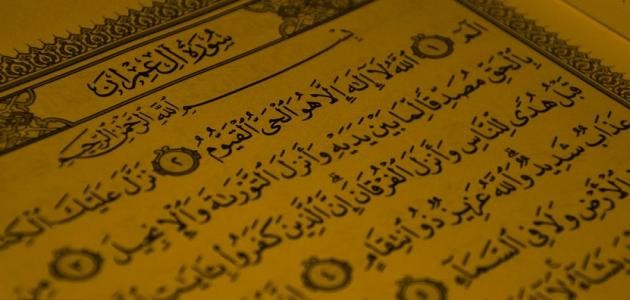 سُورَةُ آلِ عِمْرَانَ
بِسْمِ ٱللَّهِ ٱلرَّحْمَٰنِ ٱلرَّحِيمِ
الٓمٓ ١ ٱللَّهُ لَآ إِلَٰهَ إِلَّا هُوَ ٱلْحَىُّ ٱلْقَيُّومُ ٢ نَزَّلَ عَلَيْكَ
بِٱلْحَقِّ مُصَدِّقًا لِّمَا بَيْنَ يَدَيْهِ وَأَنزَلَ ٱلتَّوْرَىٰةَ وَٱلْإِنجِيلَ ٣ مِن
قَبْلُ هُدًى لِّلنَّاسِ وَأَنزَلَ ٱلْفُرْقَانَ إِنَّ ٱلَّذِينَ كَفَرُوا۟ بِـَٔايَٰتِ
عَذَابٌ شَدِيدٌ وَٱللَّهُ عَزِيزٌ ذُو ٱنتِقَامٍ ٤
ٱلْأَرْضِ وَلَا فِى ٱلسَّمَآءِ ٥